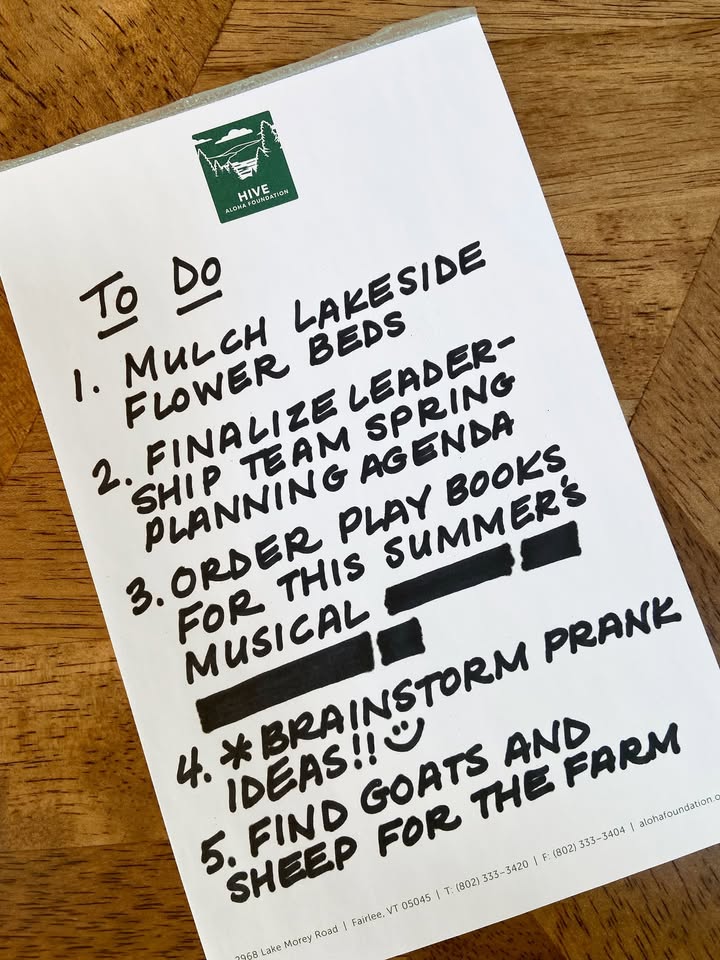 HIVE
ALOHA FOUNDATION
To Do
1. MULCH LAKESIDE
FLOWER BEDS
2. FINALIZE LEADER-
SHIP TEAM SPRING
PLANNING AGENDA
3. ORDER PLAY BOOKS
FOR THIS SUMMER'S
MUSICAL
4. *BRAINSTORM PRANK
IDEAS!!
5. FIND GOATS AND
SHEEP FOR THE FARM
2968 Lake Morey Road | Fairlee, VT 05045 | T: (802) 333-3420 | F: (802) 333-3404 | alohafoundation.o